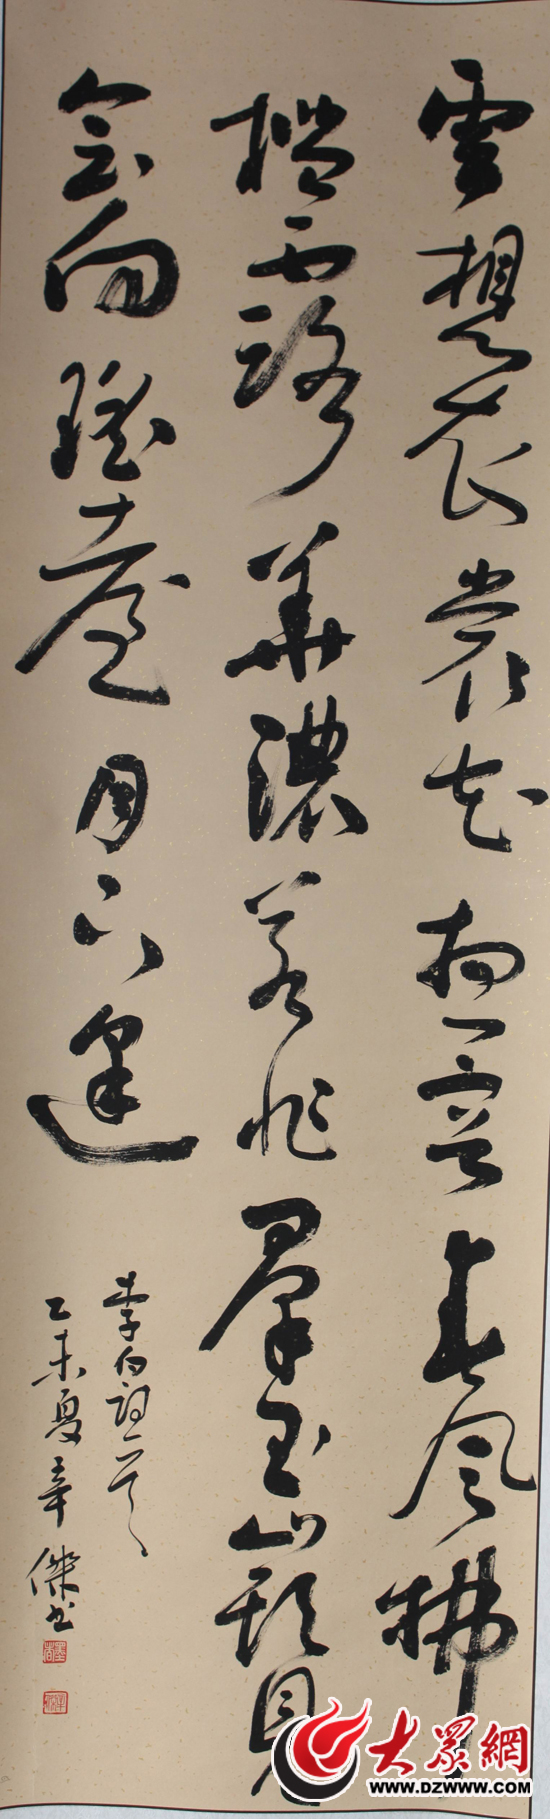 雲想衣裳花想容春風拂
檻露華濃若非羣玉山頭見
會向瑤臺月下逢
李白詩一首
乙未夏辛傑书
大眾網
WWW.DZWWW.COM